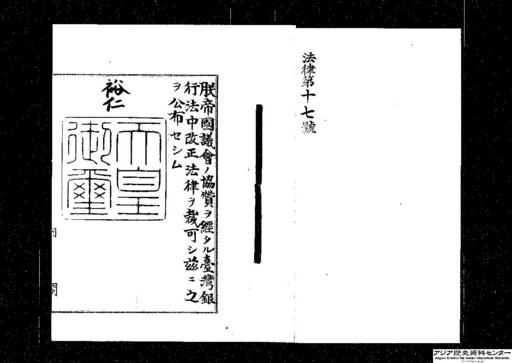 法律第十七號
朕帝國議會ノ協贊ヲ經タル臺灣銀
行法中改正法律ヲ裁可シ茲ニ之
ヲ公布セシム
裕仁
天皇
御璽
アジア歴史資料センター
Japan Center for Asian Historical Records